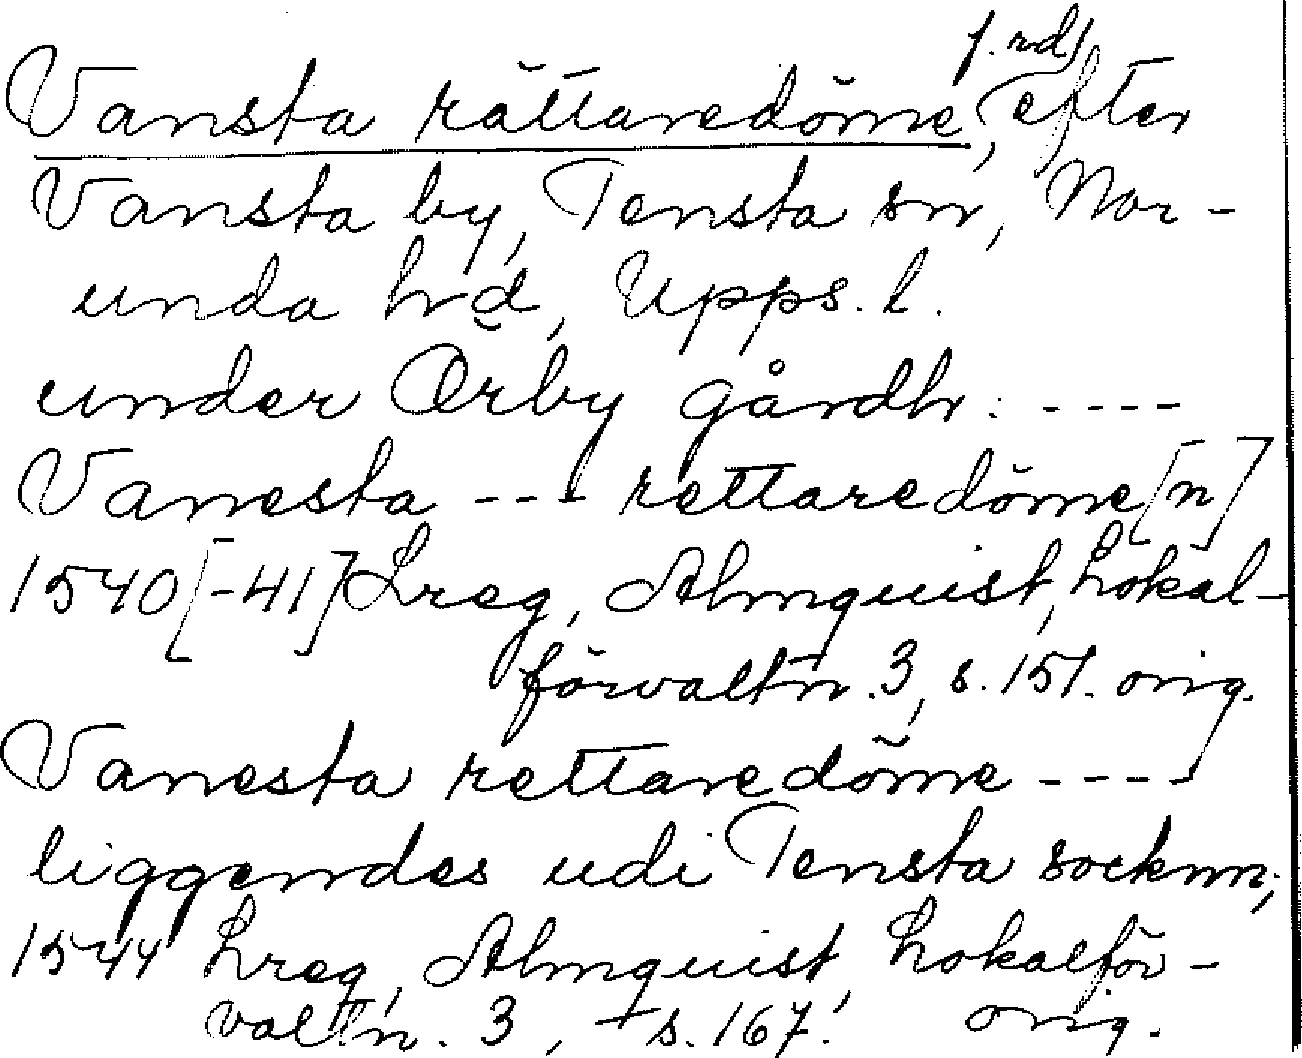 f.rd,
Vansta rättaredöme, efter
Vansta by, Tensta sn, Nor-
unda hrd, Upps. l.
under Ørby gårdh: ----
Vanesta --- rettaredöme[n]
1540[-41] Lreg, Almquist, Lokal-
förvaltn. 3, s. 151. orig.
Vanesta rettaredöme ----
liggendes udi Tensta socknn;
1544 Lreg, Almquist, Lokalför-
valtn. 3, s. 167. orig.